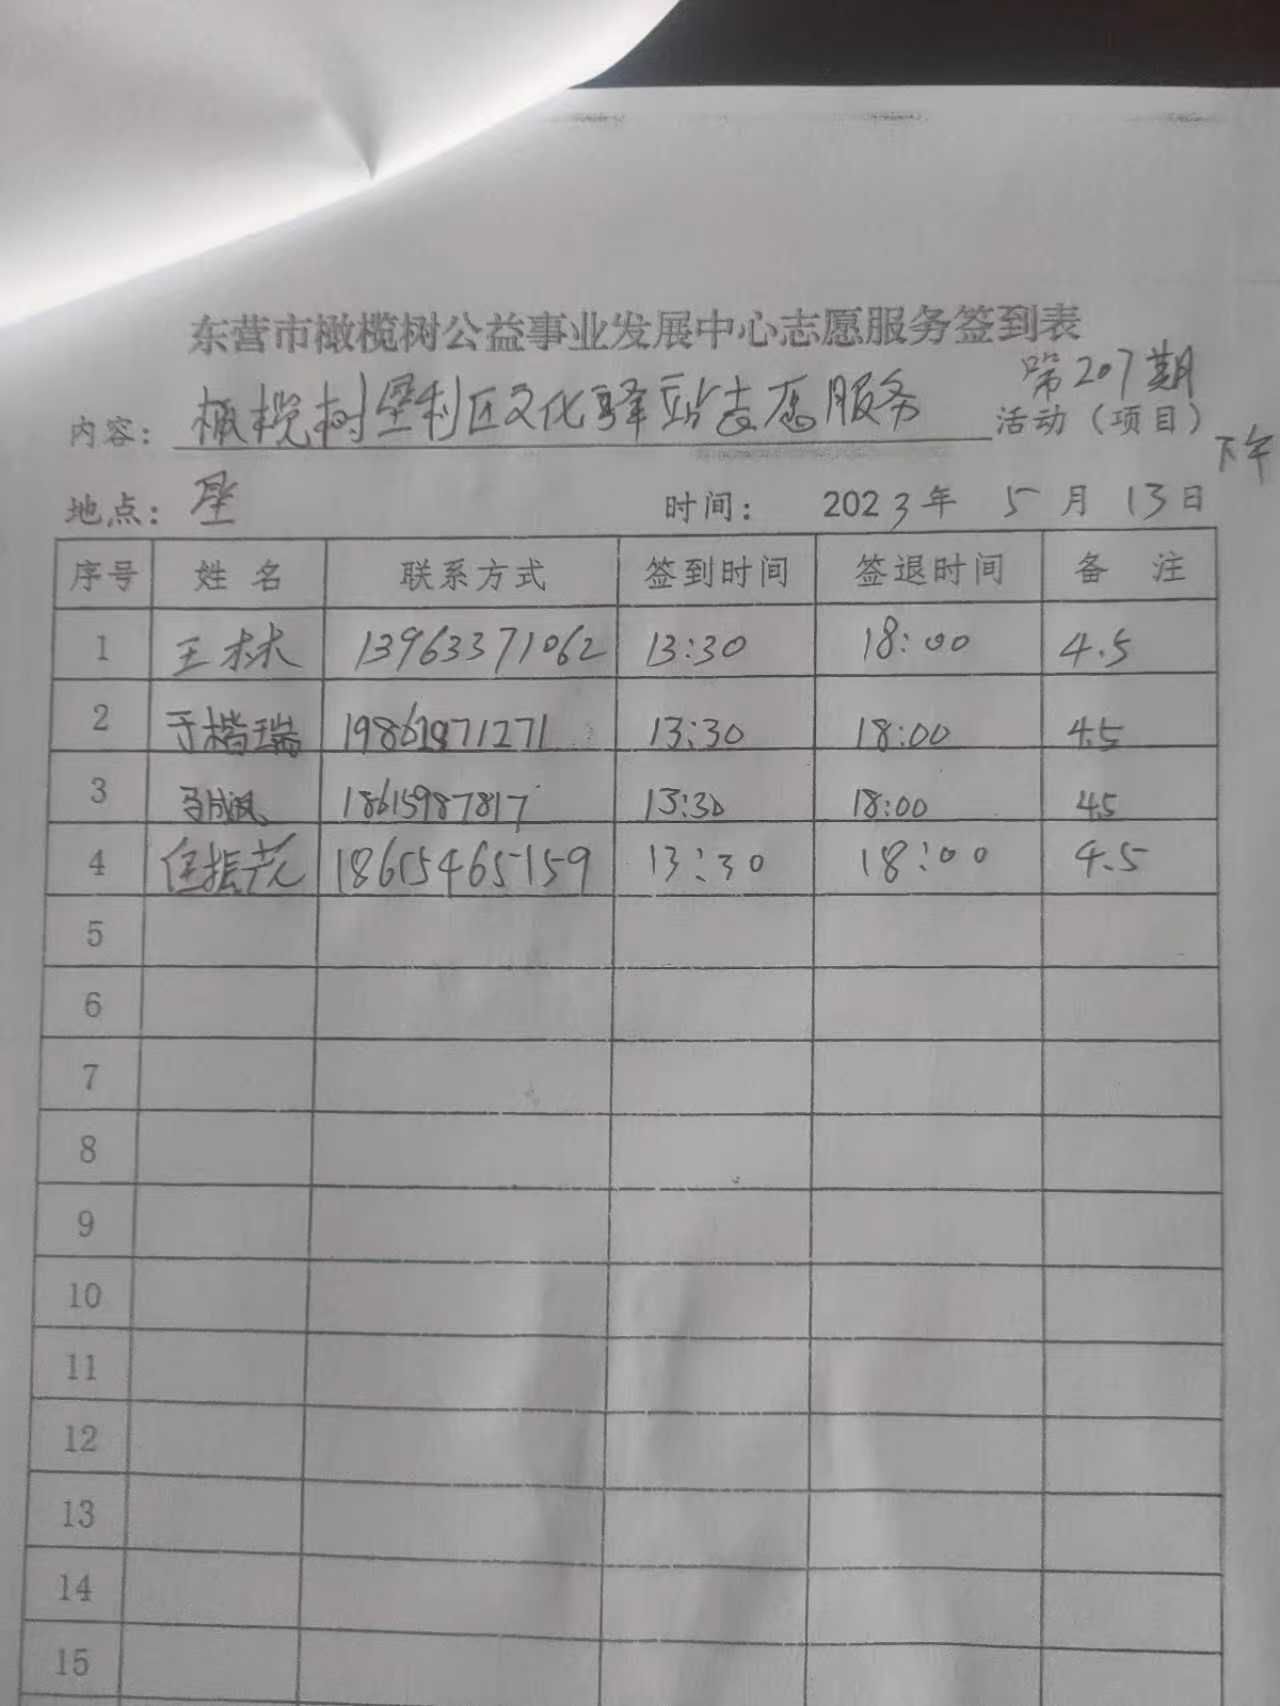 东营市橄榄树公益事业发展中心志愿服务签到表
第207期
内容：橄榄树垦利区文化驿站志愿服务 活动（项目）
下午
地点： 时间： 2023年 5月 13日
序号 姓名 联系方式 签到时间 签退时间 备注
1 王林 13963371062 13:30 18:00 4.5
2 于楷瑞 19861871271 13:30 18:00 4.5
3 18615987817 13:30 18:00 4.5
4 18655465159 13:30 18:00 4.5
5
6
7
8
9
10
11
12
13
14
15